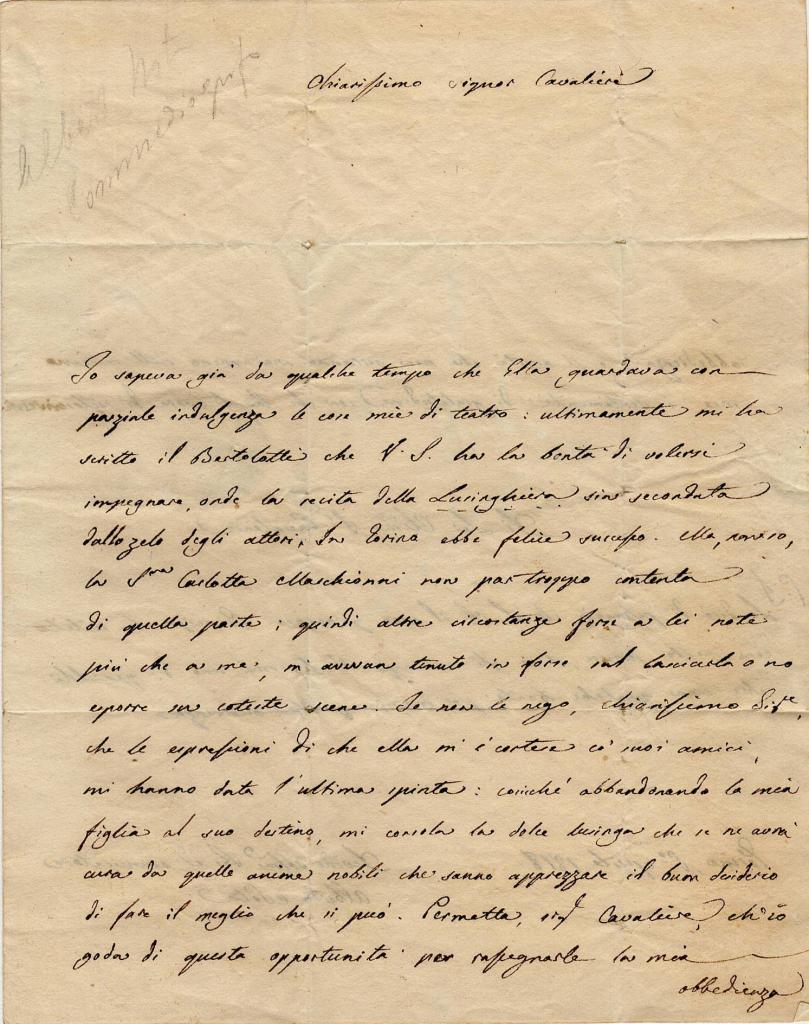 Alber Nt
Commediografo
Chiarissimo Signor Cavaliere
Io sapeva già da qualche tempo che Ella guardava con
parziale indulgenza le cose mie di teatro: ultimamente mi ha
scritto il Bertolotti che V. S. ha la bontà di volersi
impegnare, onde la recita della Lusinghiera sia secondata
dallo zelo degli attori. In Torino ebbe felice successo. Ma,
la Sra Carlotta Marchionni non par troppo contenta
di quella parte; quindi altre circostanze forse a lei note
più che a me, mi avevan tenuto in forse sul lasciarla o no
esporre su coteste scene. Io non le nego, chiarissimo Sigre,
che le espressioni di che ella mi è cortese co' suoi amici,
mi hanno data l'ultima spinta: cosicché abbandonando la mia
figlia al suo destino, mi consola la dolce lusinga che se ne avrà
cura da quelle anime nobili che sanno apprezzare il buon desiderio
di fare il meglio che si può. Permetta, sigr Cavaliere, ch'io
goda di questa opportunità per rassegnarle la mia
obbedienza